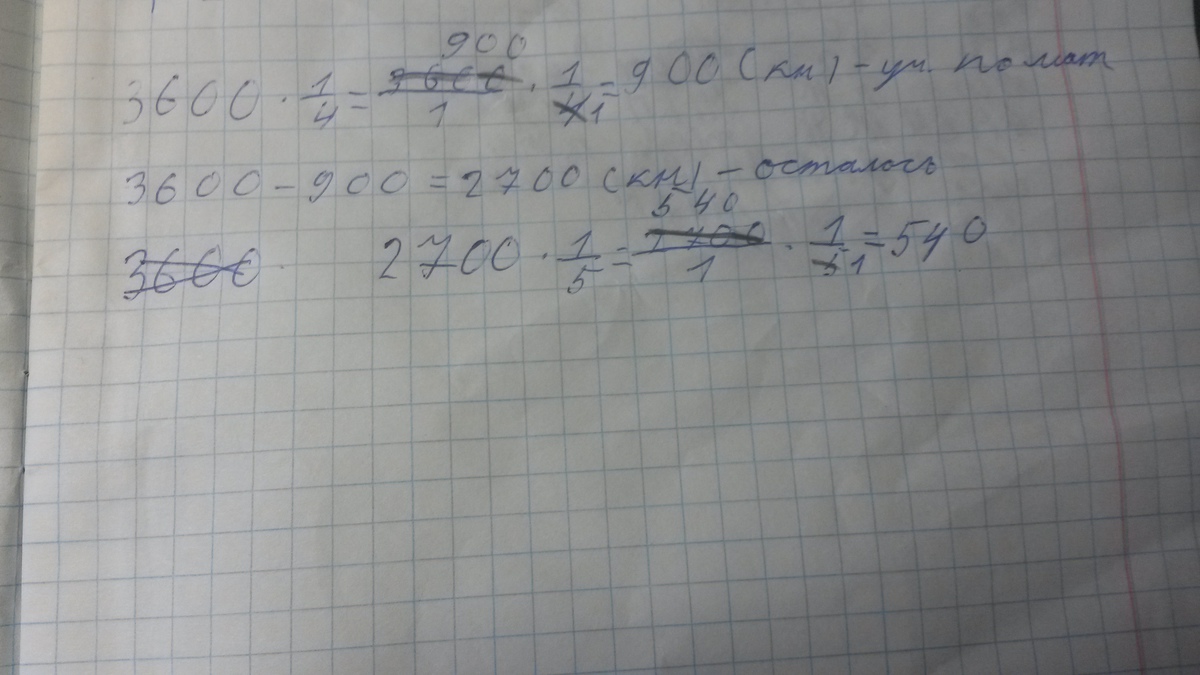 900
3600 · 1/4 = 3600/1 · 1/4 1 = 900 (км) - уч. помат
3600 - 900 = 2700 (км) - осталось
540
3600 · 2700 · 1/5 = 2700/1 · 1/5 1 = 540